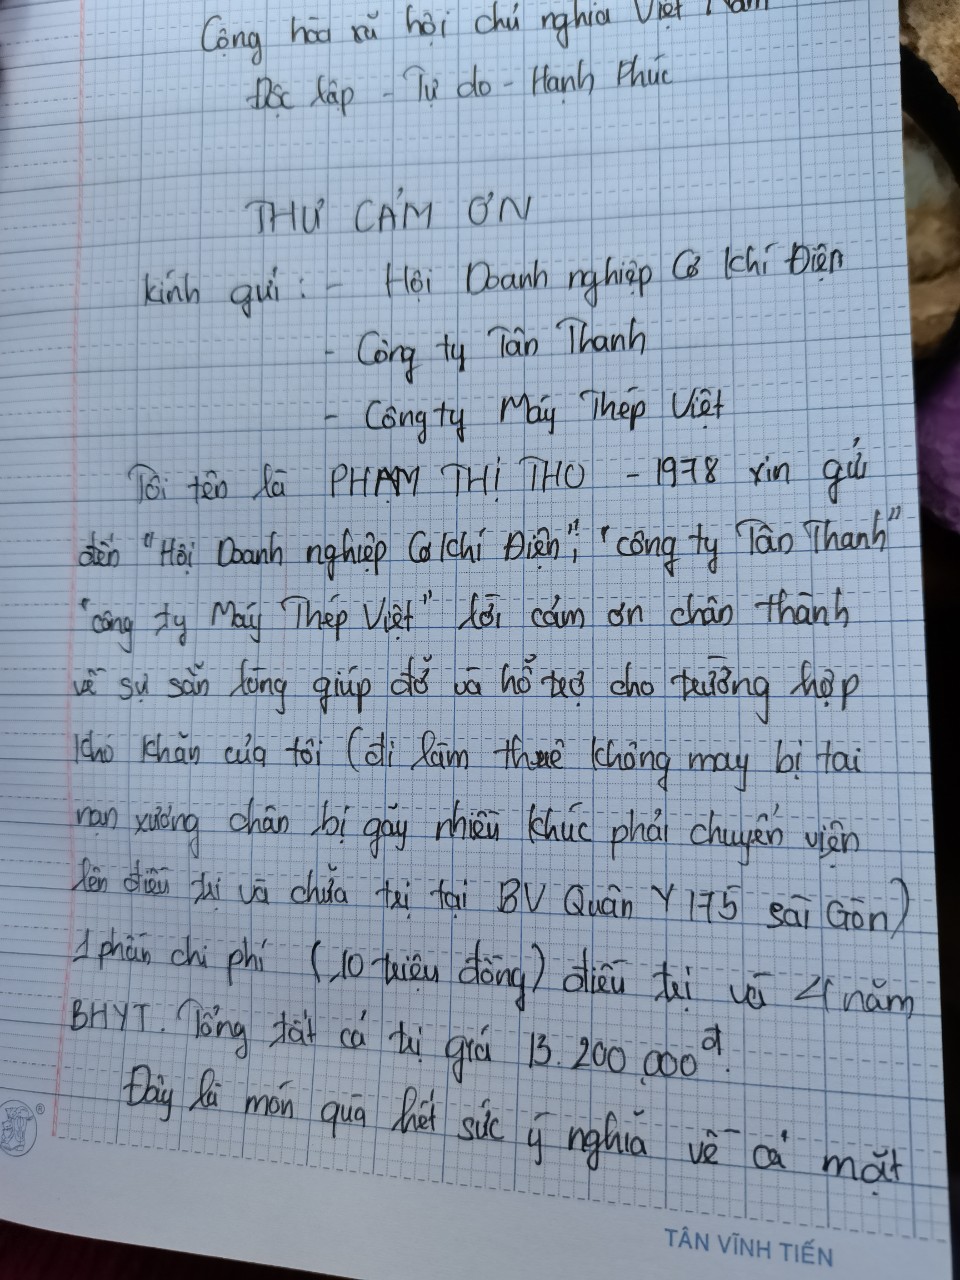 Cộng hòa xã hội chủ nghĩa Việt Nam
Độc lập - Tự do - Hạnh Phúc
THƯ CẢM ƠN
Kính gửi : - Hội Doanh nghiệp Cơ Khí Điện
- Công ty Tân Thanh
- Công ty Máy Thép Việt
Tôi tên là PHẠM THỊ THO - 1978 xin gửi
đến "Hội Doanh nghiệp Cơ Khí Điện", "công ty Tân Thanh"
"công ty Máy Thép Việt" lời cám ơn chân thành
về sự sẵn lòng giúp đỡ và hổ trợ cho trường hợp
khó khăn của tôi (đi làm thuê không may bị tai
nạn xương chân bị gãy nhiều khúc phải chuyển viện
lên điều trị và chữa trị tại BV Quân Y 175 Sài Gòn)
1 phần chi phí (10 triệu đồng) điều trị và 4 năm
BHYT. Tổng tất cả trị giá 13.200.000đ.
Đây là món quà hết sức ý nghĩa về cả mặt
®
TÂN VĨNH TIẾN